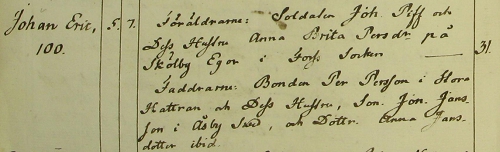 Johan Eric, 5. 7. Föräldrarne: Soldaten Joh. Piff och
100. Dess Hustru Anna Brita Persdr på 31.
Skölby Egor i Forss Socken
Faddrarne: Bonden Per Persson i Stora
Hattran och Dess Hustru, Son. Jon. Jans-
son i Åsby Sked, och Dottr. Anna Jans-
dotter ibid.